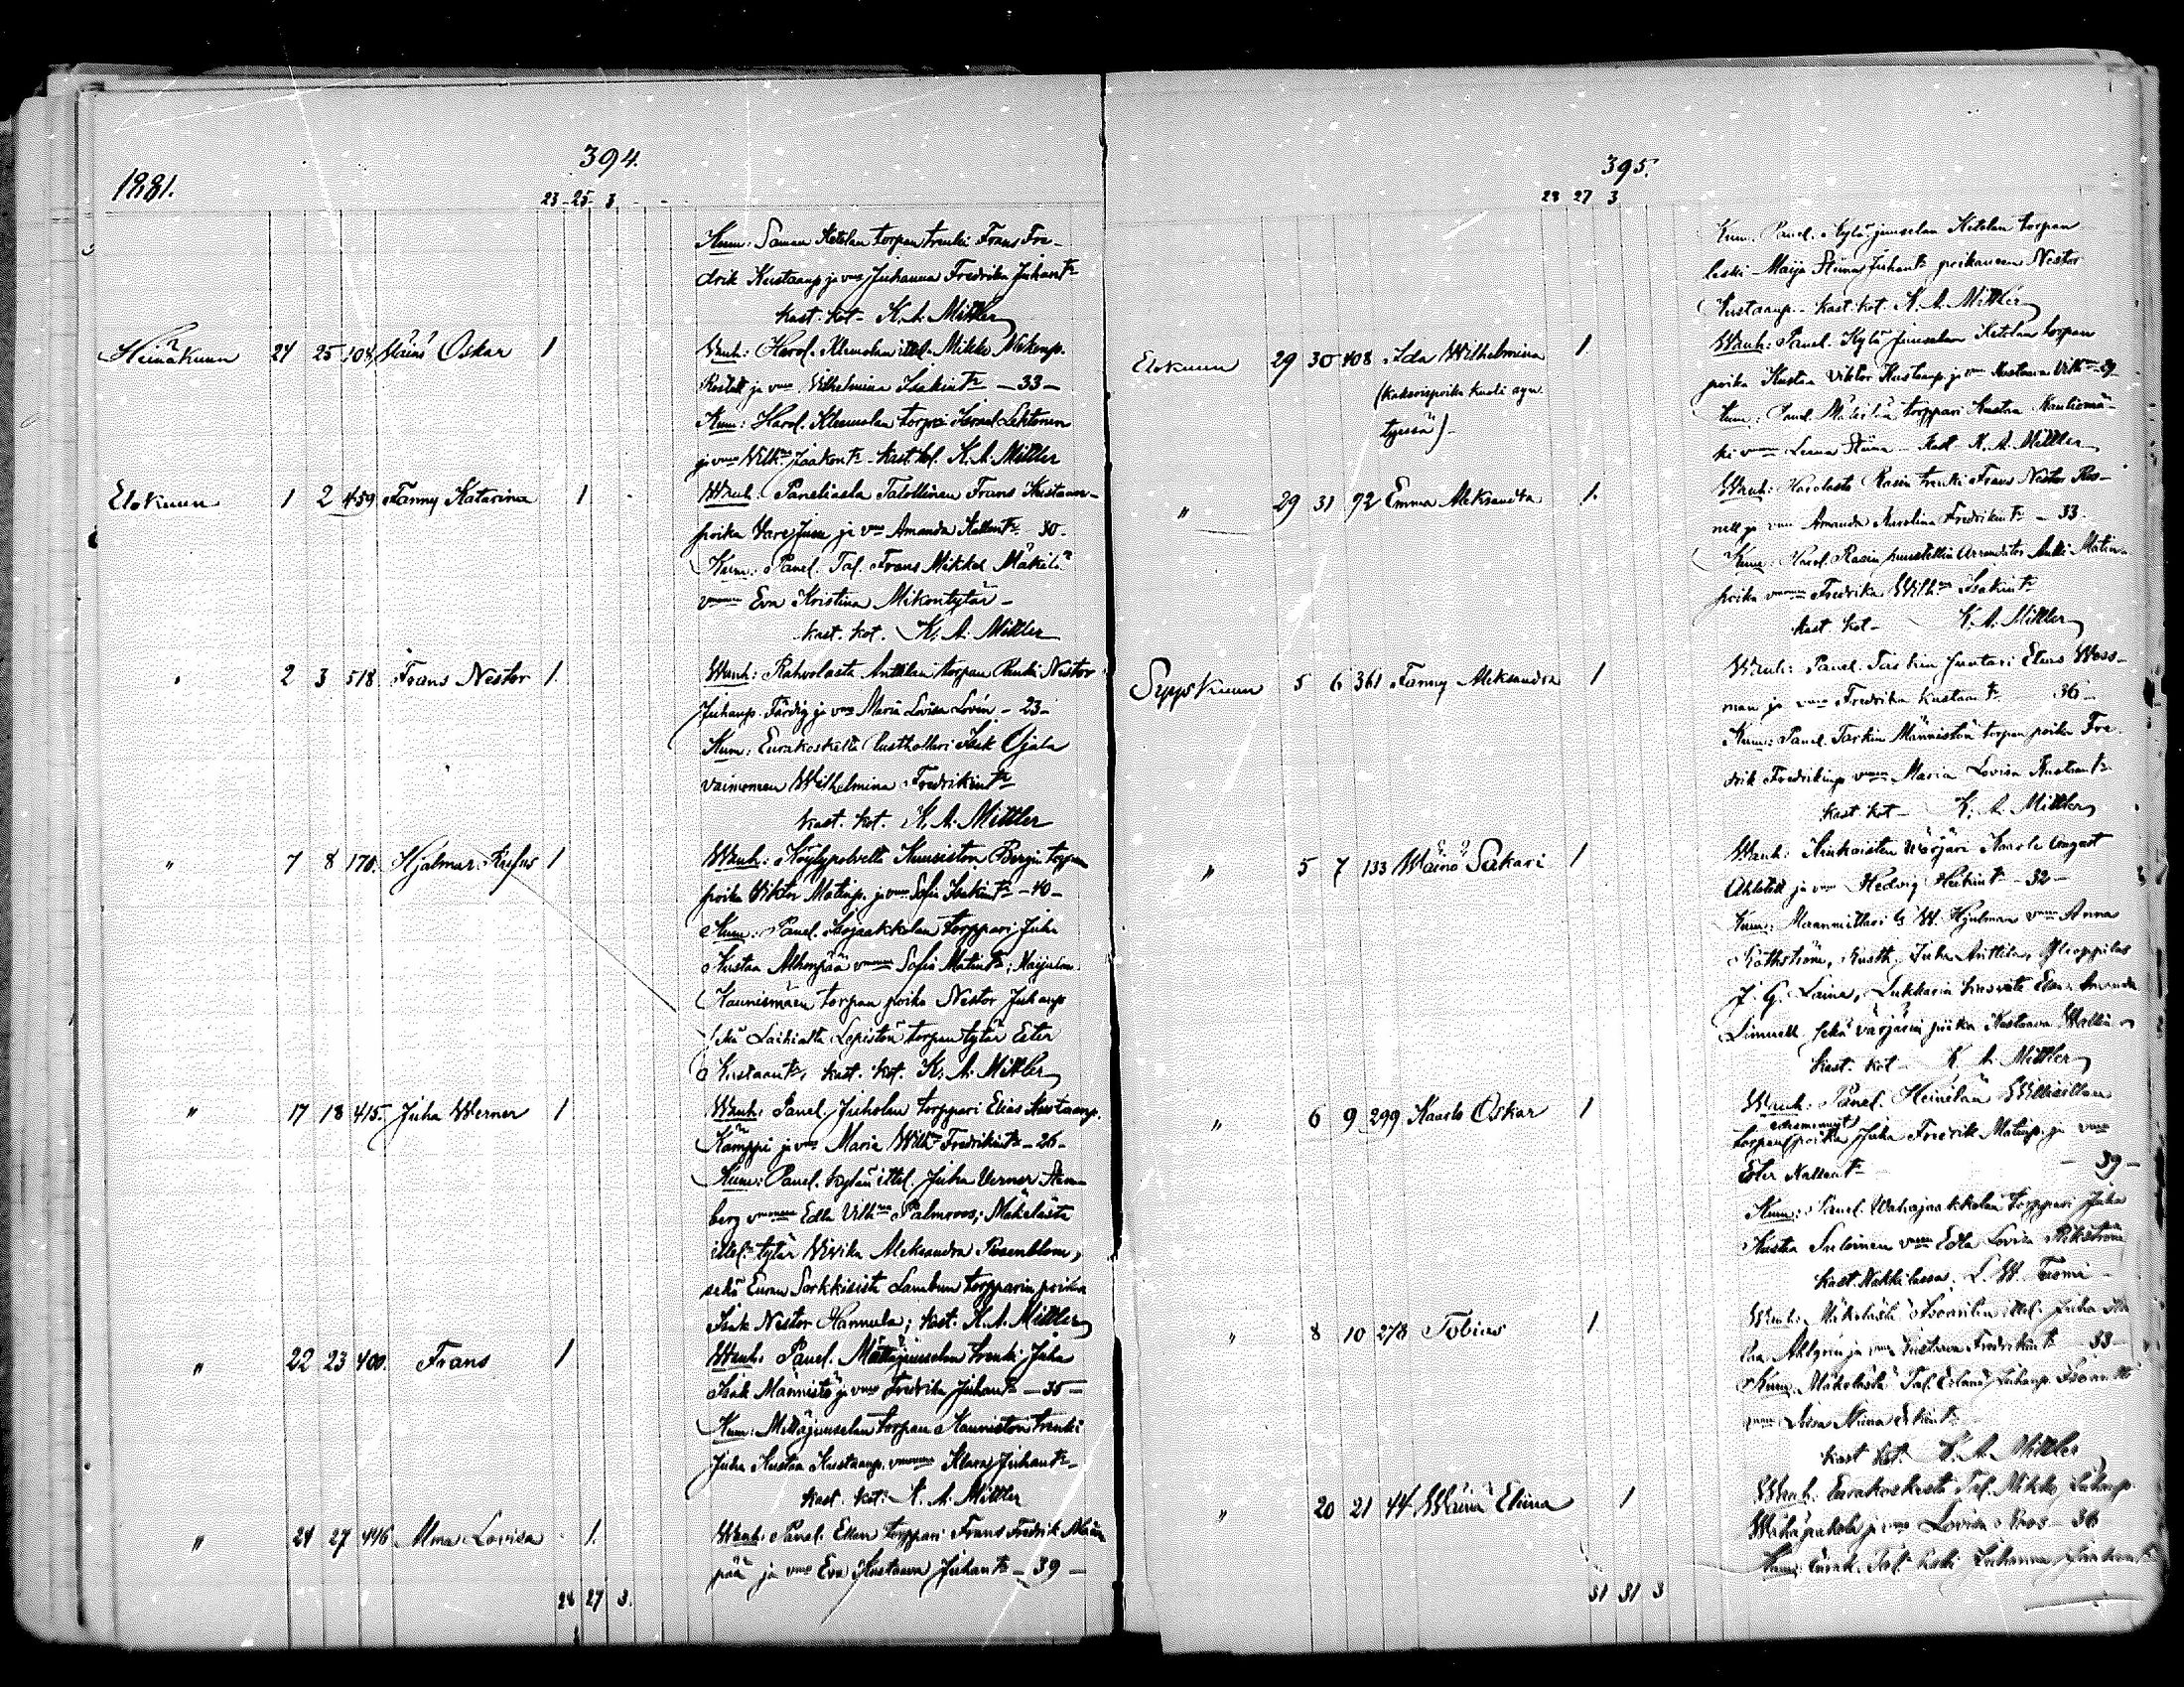 394.
1881.
23 25 3
Kum: Saman Ketolan torpan trenki Frans Fre-
drik Kustaanp. ja vmo Juhanna Fredrika Juhant:r
kast. kot. K. A. Mittler
Heinäkuun 24 25 104 Väinö Oskar 1
Wanh: Harol. Klemolan ittel. Mikko Mikonp.
ja vmo Vilhelmina Isakint:r — 33 —
Kum: Harol. Klemolan torpri Israel Lehtonen
ja vmo Wilh:na Jaakont:r kast. kot. K. A. Mittler
Elokuun 1 2 459 Fanny Katarina 1
Wanh: Paneliasta Talollinen Frans Kustaan-
poika Vare Juse ja vmo Amanda Kallent:r — 30 —
Kum: Panel. Tal. Frans Mikkel Mäkilä
vmoneen Eva Kristina Mikontytär —
kast. kot. K. A. Mittler
" 2 3 518 Frans Nestor 1
Wanh: Rahvolasta Anttilan torpan Renki Nestor
Juhanp. Färdig ja vmo Maria Lovisa Lovén — 23 —
Kum: Eurakoskelta Rusthollari Isak Ojala
vaimoneen Wilhelmina Fredrikint:r
kast. kot. K. A. Mittler
" 7 8 170. Hjalmar Rufus 1
Wanh: Köylypolvelta Kuusiston Bergin torpan
poika Viktor Matinp. ja vmo Sofia Isakint:r — 40 —
Kum: Panel. Isojaakkolan torppari Juha
Kustaa Alhonpää vmoneen Sofia Matint:r;
Kaunismäen torpan poika Nestor Juhanp.
sekä Laihialta Lepistön torpan tytär Ester
Kustaant:r, kast. kot. K. A. Mittler
" 17 18 415. Juha Werner 1
Wanh: Panel. Juholan torppari Elias Kustaanp.
Kämppi ja vmo Maria Wilh:na Fredrikint:r — 26 —
Kum: Panel. kylän ittel. Juha Verner Sten-
berg vmoneen Edla Vilh:na Palmroos; Mäkelästä
ittel. tytär Viivika Aleksandra Rosenblom,
sekä Euran Sorkkisista Lambun torpparin poika
Isak Nestor Hannula; kast. K. A. Mittler
" 22 23 400. Frans 1
Wanh: Panel. Mättäjuuselan trenki Juha
Isak Männistö ja vmo Fredrika Juhant:r — 35 —
Kum: Mettäjuuselan torpan Kauniston trenki
Juha Kustaa Kustaanp. vmoneen Klara Juhant:r —
kast. kot. K. A. Mittler
" 24 27 446 Alma Lovisa 1.
Wanh: Panel. Ellan torppari Frans Fredrik
pää ja vmo Eva Kustaava Juhant:r — 39 —
28 27 3.
395.
28 27 3
Kum. Panel. Kyläjuuselan Ketolan torpan
leski Maija Stiina Juhant:r poikaneen Nestor
Kustaanp. kast. kot. K. A. Mittler
Elokuun 29 30 408 Ida Wilhelmina 1.
(kaksoispoika kuoli syn-
tyissä).
Wanh: Panel. Kylä Juuselan Ketolan torpan
poika Kustaa Viktor Kustaanp. ja vmo Kustaava Vilh:na 29
Kum: Panel. Mäkilän torppari Kustaa Kauttomä-
ki vmoneen Leena Stiina — Kast. K. A. Mittler
" 29 31 92 Emma Aleksandra 1.
Wanh: Harolasta Rasin trenki Frans Nestor Ros-
nell ja vmo Amanda Karolina Fredrikint:r — 33.
Kum: Harol. Rasin puustellin Arrentator Antti Matin-
poika vmoneen Fredrika Wilh:na Isakint:r
kast. kot. K. A. Mittler
Syyskuun 5 6 361 Fanny Aleksandra 1
Wanh: Panel. Elias Wess-
man ja vmo Fredrika Kustaant:r 36 —
Kum: Panel. Tarkin Männistön torpan poika Fre-
drik Fredrikinp. vmoneen Maria Lovisa Kustaant:r
kast. kot. K. A. Mittler
" 5 7 133 Wäinö Sakari 1
Wanh: Kiukaisten Värjäri Kaarle August
Ahlstedt ja vmo Hedvig Heikint:r — 32 —
Kum: Maanmittari G. W. Hjulman vmoneen Anna
Käthström, Rusth. Juha Anttila, Ylioppilas
J. G. Laine, Lukkarin Amanda
Linnell sekä värjärin poika Kustaava Wallin
kast. kot. K. A. Mittler
" 6 9 299 Kaarlo Oskar 1
Wanh: Panel. Heinilän
torpan poika Juha Fredrik Matinp. ja vmo
Ester Kallent:r — 39 —
Kum: Panel. Wahajaakkolan torppari Juha
Kustaa Suloinen vmoneen Edla Lovisa
Kast. Nakkilassa. L. W. Tuomi —
" 8 10 278 Tobias 1
Wanh: Mäkelästä Isoantin ittel. Juha
Ahlgrén ja vmo Kustaava Fredrikint:r 33 —
Kum: Mäkelästä Tal. Juhanp. Isoantti
vmoneen Stiina
kast. kot. K. A. Mittler
" 20 21 44 Wäinä Eliina 1
Wanh: Eurakoskesta Tal. Mikko Juhanp.
ja vmo Lovisa Roos — 36
Kum: Eurak. Tal. Leski Juhanna
31 31 3